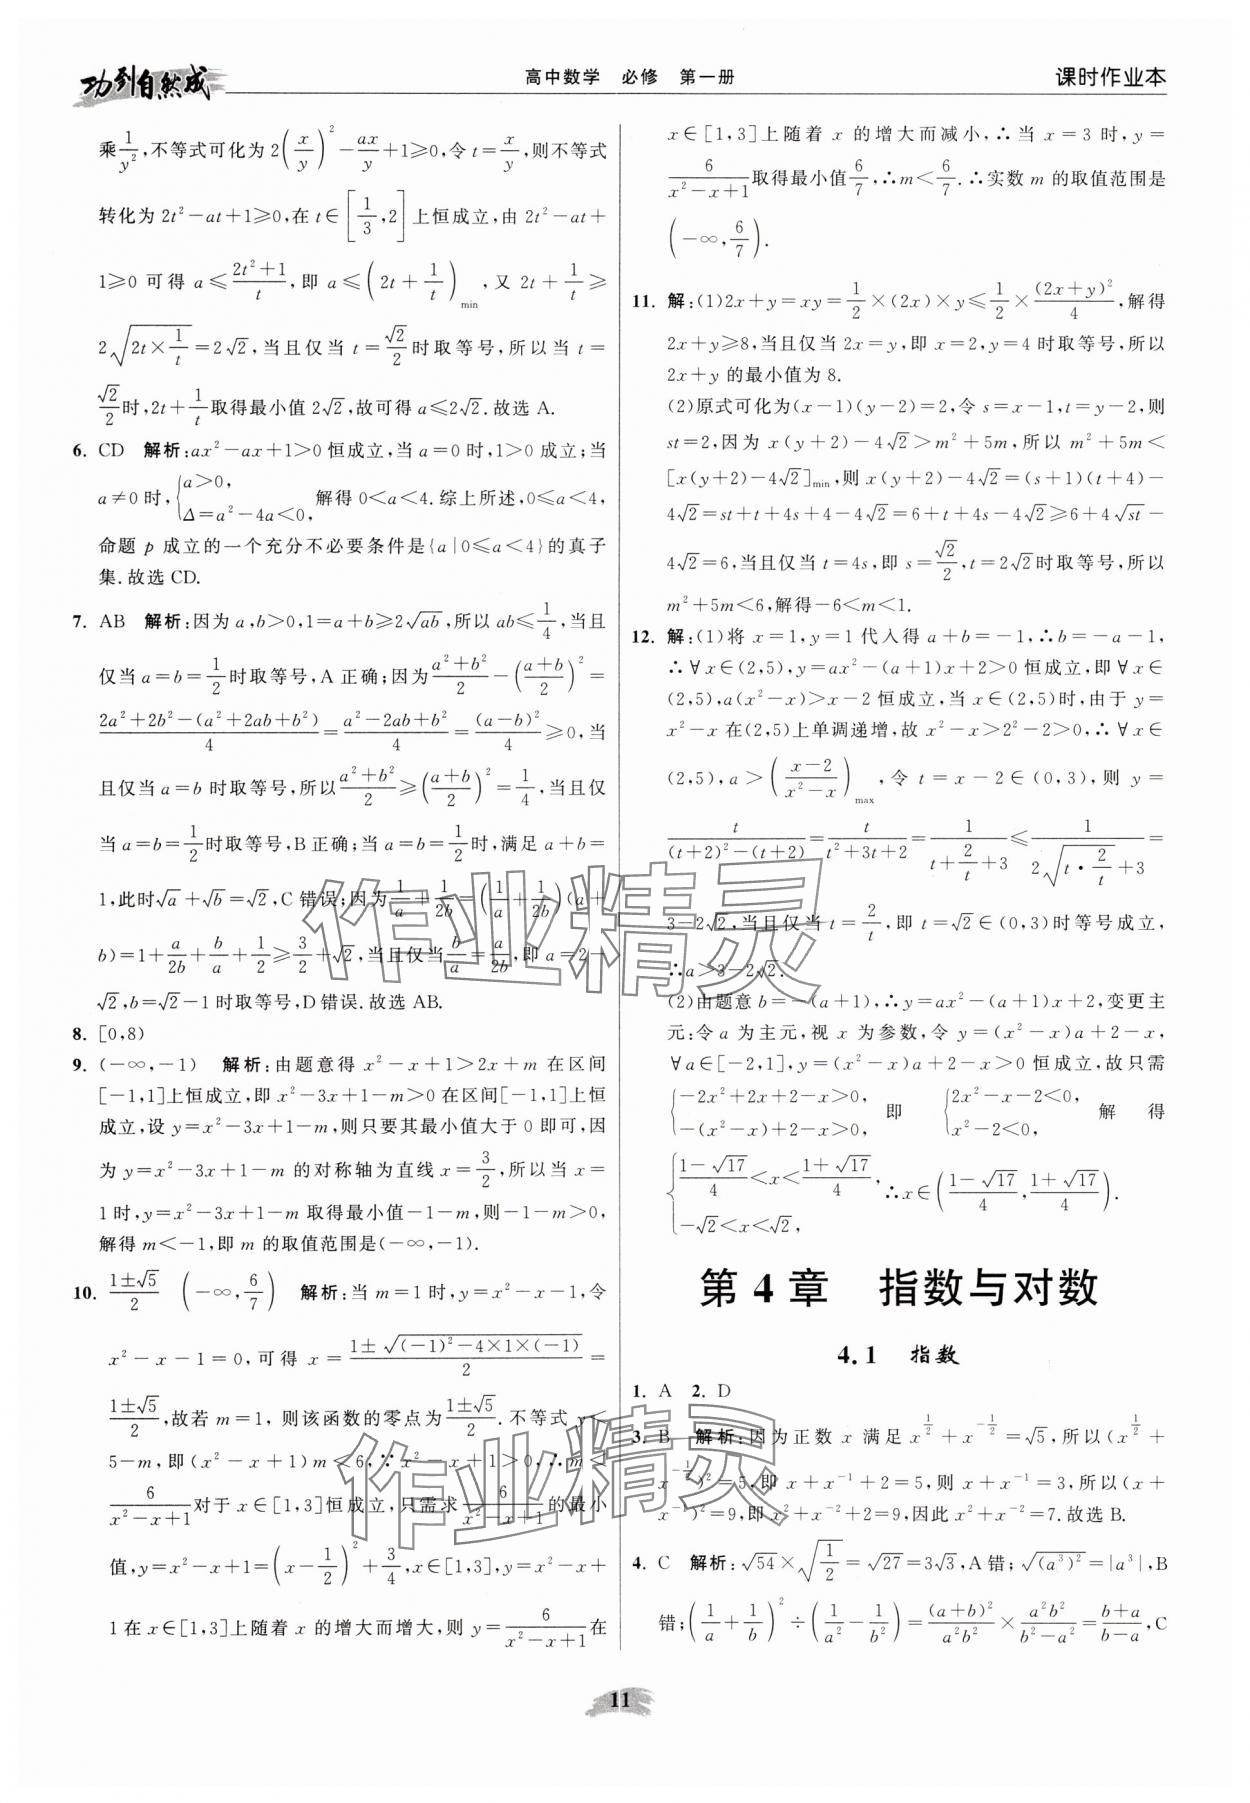 功到自然成
高中数学 必修 第一册
课时作业本
乘1/y²,不等式可化为2(x/y)²-ax/y+1≥0,令t=x/y,则不等式
转化为2t²-at+1≥0,在t∈[1/3,2]上恒成立,由2t²-at+
1≥0可得a≤(2t²+1)/t,即a≤(2t+1/t)min,又2t+1/t≥
2√(2t×1/t)=2√2,当且仅当t=√2/2时取等号,所以当t=
√2/2时,2t+1/t取得最小值2√2,故可得a≤2√2.故选A.
6. CD 解析:ax²-ax+1>0恒成立,当a=0时,1>0成立;当
a≠0时,{a>0, Δ=a²-4a<0, 解得0<a<4.综上所述,0≤a<4,
命题p成立的一个充分不必要条件是{a|0≤a<4}的真子
集.故选CD.
7. AB 解析:因为a,b>0,1=a+b≥2√ab,所以ab≤1/4,当且
仅当a=b=1/2时取等号,A正确;因为(a²+b²)/2-((a+b)/2)²=
(2a²+2b²-(a²+2ab+b²))/4=(a²-2ab+b²)/4=(a-b)²/4≥0,当
且仅当a=b时取等号,所以(a²+b²)/2≥((a+b)/2)²=1/4,当且仅
当a=b=1/2时取等号,B正确;当a=b=1/2时,满足a+b=
1,此时√a+√b=√2,C错误;因为1/a+1/2b=(1/a+1/2b)(a+
b)=1+a/2b+b/a+1/2≥3/2+√2,当且仅当b/a=a/2b,即a=2-
√2,b=√2-1时取等号,D错误.故选AB.
8. [0,8)
9. (-∞,-1) 解析:由题意得x²-x+1>2x+m在区间
[-1,1]上恒成立,即x²-3x+1-m>0在区间[-1,1]上恒
成立,设y=x²-3x+1-m,则只要其最小值大于0即可,因
为y=x²-3x+1-m的对称轴为直线x=3/2,所以当x=
1时,y=x²-3x+1-m取得最小值-1-m,则-1-m>0,
解得m<-1,即m的取值范围是(-∞,-1).
10. (1±√5)/2 (-∞,6/7) 解析:当m=1时,y=x²-x-1,令
x²-x-1=0,可得x=(1±√((-1)²-4×1×(-1)))/2=
(1±√5)/2,故若m=1,则该函数的零点为(1±√5)/2.不等式y<
5-m,即(x²-x+1)m<6,∵x²-x+1>0,∴m<
6/(x²-x+1)对于x∈[1,3]恒成立,只需求6/(x²-x+1)的最小
值,y=x²-x+1=(x-1/2)²+3/4,x∈[1,3],y=x²-x+
1在x∈[1,3]上随着x的增大而增大,则y=6/(x²-x+1)在
x∈[1,3]上随着x的增大而减小,∴当x=3时,y=
6/(x²-x+1)取得最小值6/7,∴m<6/7.∴实数m的取值范围是
(-∞,6/7).
11. 解:(1)2x+y=xy=1/2×(2x)×y≤1/2×(2x+y)²/4,解得
2x+y≥8,当且仅当2x=y,即x=2,y=4时取等号,所以
2x+y的最小值为8.
(2)原式可化为(x-1)(y-2)=2,令s=x-1,t=y-2,则
st=2,因为x(y+2)-4√2>m²+5m,所以m²+5m<
[x(y+2)-4√2]min,则x(y+2)-4√2=(s+1)(t+4)-
4√2=st+t+4s+4-4√2=6+t+4s-4√2≥6+4√st-
4√2=6,当且仅当t=4s,即s=√2/2,t=2√2时取等号,所以
m²+5m<6,解得-6<m<1.
12. 解:(1)将x=1,y=1代入得a+b=-1,∴b=-a-1,
∴∀x∈(2,5),y=ax²-(a+1)x+2>0恒成立,即∀x∈
(2,5),a(x²-x)>x-2恒成立,当x∈(2,5)时,由于y=
x²-x在(2,5)上单调递增,故x²-x>2²-2>0,∴∀x∈
(2,5),a>((x-2)/(x²-x))max,令t=x-2∈(0,3),则y=
t/((t+2)²-(t+2))=t/(t²+3t+2)=1/(t+2/t+3)≤1/(2√(t·2/t)+3)=
3-2√2,当且仅当t=2/t,即t=√2∈(0,3)时等号成立,
∴a>3-2√2.
(2)由题意b=-(a+1),∴y=ax²-(a+1)x+2,变更主
元:令a为主元,视x为参数,令y=(x²-x)a+2-x,
∀a∈[-2,1],y=(x²-x)a+2-x>0恒成立,故只需
{-2x²+2x+2-x>0, -(x²-x)+2-x>0, 即 {2x²-x-2<0, x²-2<0, 解得
{(1-√17)/4<x<(1+√17)/4, -√2<x<√2, ∴x∈((1-√17)/4,(1+√17)/4).
第4章 指数与对数
4.1 指数
1. A 2. D
3. B 解析:因为正数x满足x^(1/2)+x^(-1/2)=√5,所以(x^(1/2)+
x^(-1/2))²=5,即x+x⁻¹+2=5,则x+x⁻¹=3,所以(x+
x⁻¹)²=9,即x²+x⁻²+2=9,因此x²+x⁻²=7.故选B.
4. C 解析:√54×√(1/2)=√27=3√3,A错;√(a³)²=|a³|,B
错;(1/a+1/b)²÷(1/a²-1/b²)=(a+b)²/a²b²×a²b²/(b²-a²)=(b+a)/(b-a),C
作业精灵
作业精灵
11